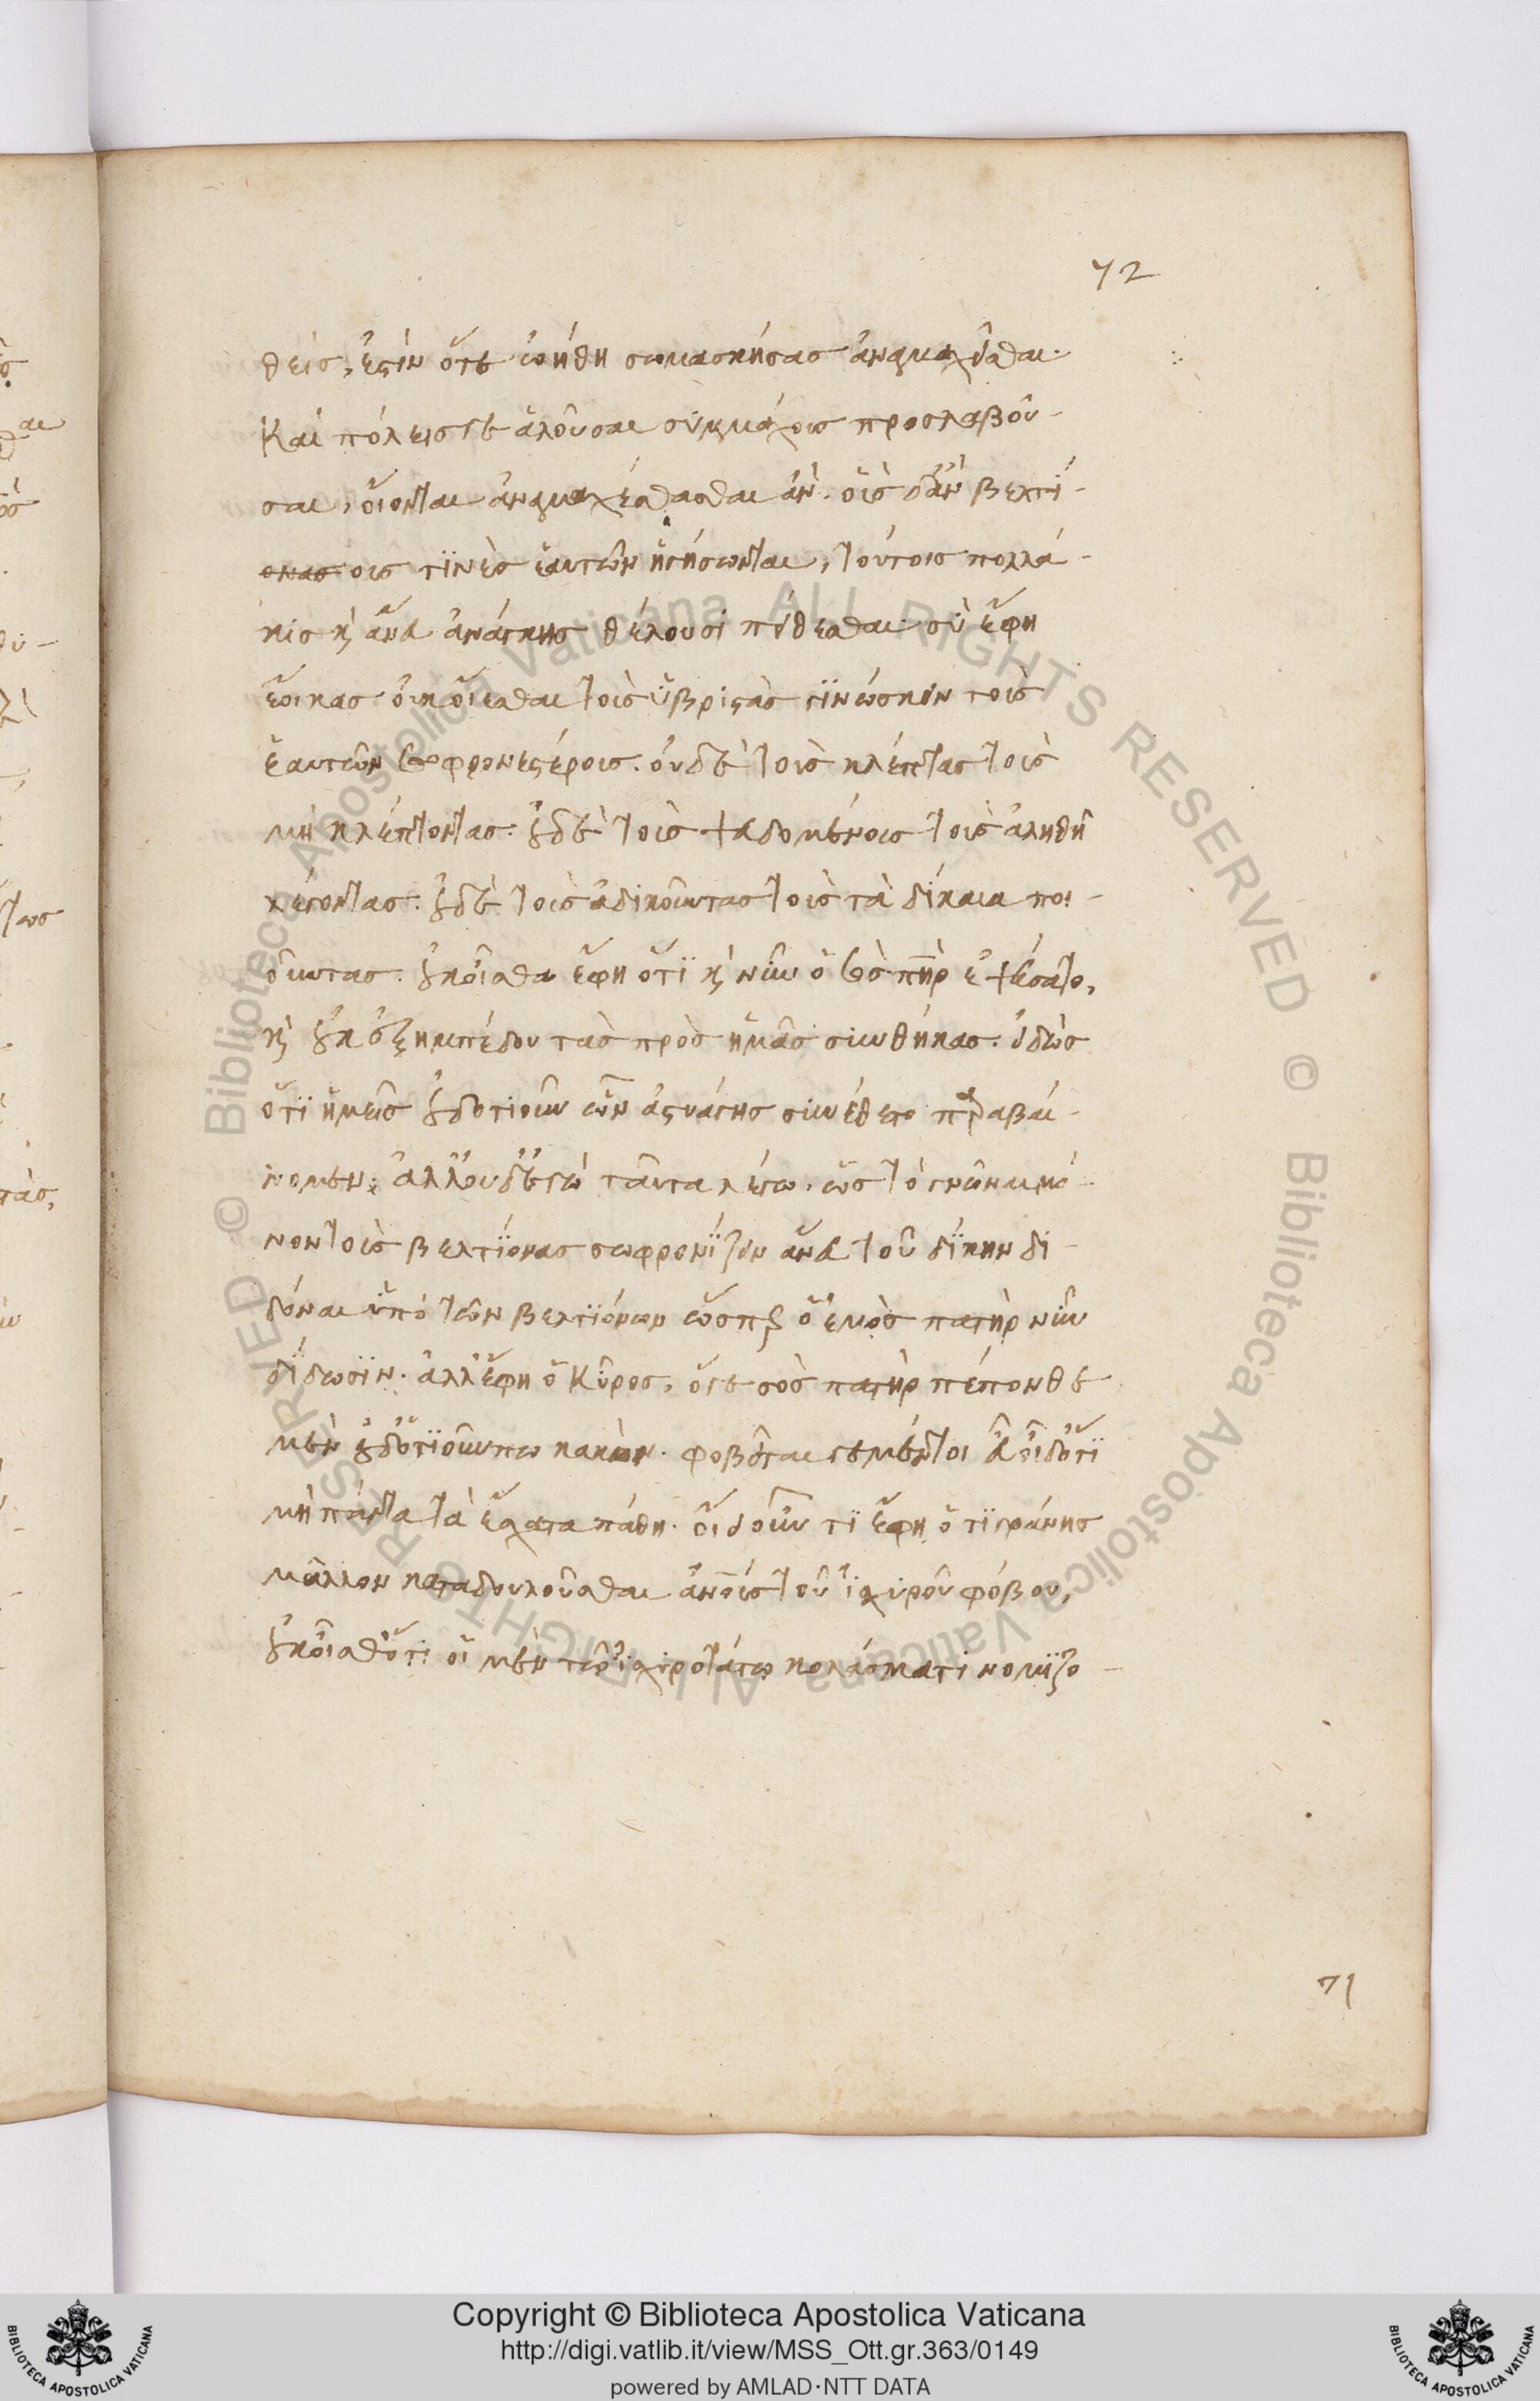 72
θεὶς, ἔστιν ὅτε ὠήθη σωμασκήσας ἀναμαχεῖσθαι.
Καὶ πόλεις γε ἁλοῦσαι συμμάχους προσλαβοῦ-
σαι, οἴονται ἀναμαχέσασθαι ἄν. οὓς δ' ἂν βελτί-
ους τινὲς ἑαυτῶν ἡγήσωνται, τούτοις πολλά-
κις καὶ ἄνευ ἀνάγκης θέλουσι πείθεσθαι. σὺ ἔφη
ἔοικας οὐκ οἴεσθαι τοὺς ὑβριστὰς γινώσκειν τοὺς
ἑαυτῶν σωφρονεστέρους. οὐδὲ τοὺς κλέπτας τοὺς
μὴ κλέπτοντας. οὐδὲ τοὺς ψευδομένους τοὺς ἀληθῆ
λέγοντας. οὐδὲ τοὺς ἀδικοῦντας τοὺς τὰ δίκαια ποι-
οῦντας. οὐκ οἶσθα ἔφη ὅτι καὶ νῦν ὁ σὸς πὴρ ἐψεύσατο,
καὶ οὐκ ἐξημπέδου τὰς πρὸς ἡμᾶς συνθήκας. εἰδὼς
ὅτι ἡμεῖς οὐδοτιοῦν ὧν ἀστυάγης συνέθετο παραβαί-
νομεν. ἀλλ' οὐδ' ἐγὼ ταῦτα λέγω. ὡς τὸ γνῶναι μό-
νον τοὺς βελτίονας σωφρονίζειν ἄνευ τοῦ δίκην δι-
δόναι ὑπὸ τῶν βελτιόνων ὥσπερ ὁ ἐμὸς πατὴρ νῦν
δίδωσιν. ἀλλ' ἔφη ὁ Κῦρος, ὅγε σὸς πατὴρ πέπονθε
μὲν οὐδοτιοῦν πω κακὸν. φοβεῖταί γε μέντοι εὖ οἶδ' ὅτι
μὴ πάντα τὰ ἔσχατα πάθη. οἴει οὖν τι ἔφη ὁ τιγράνης
μᾶλλον καταδουλοῦσθαι ἀνους τοῦ ἰσχυροῦ φόβου,
οὐκ οἶσθ' ὅτι οἱ μὲν τῷ ἰσχυροτάτω κολάσματι νομιζο-
71
Copyright © Biblioteca Apostolica Vaticana
http://digi.vatlib.it/view/MSS_Ott.gr.363/0149
powered by AMLAD·NTT DATA